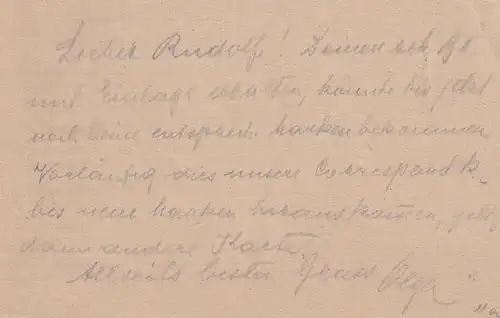 Lieber Rudolf! Deinen
und Einlage erhalten, konnte bis jetzt
noch keine entsprech. Marken bekommen
Vorläufig dies unsere Correspond k.
bis neue Marken herauskamen,
dann andere Karte.
Allseits besten Gruss Olga